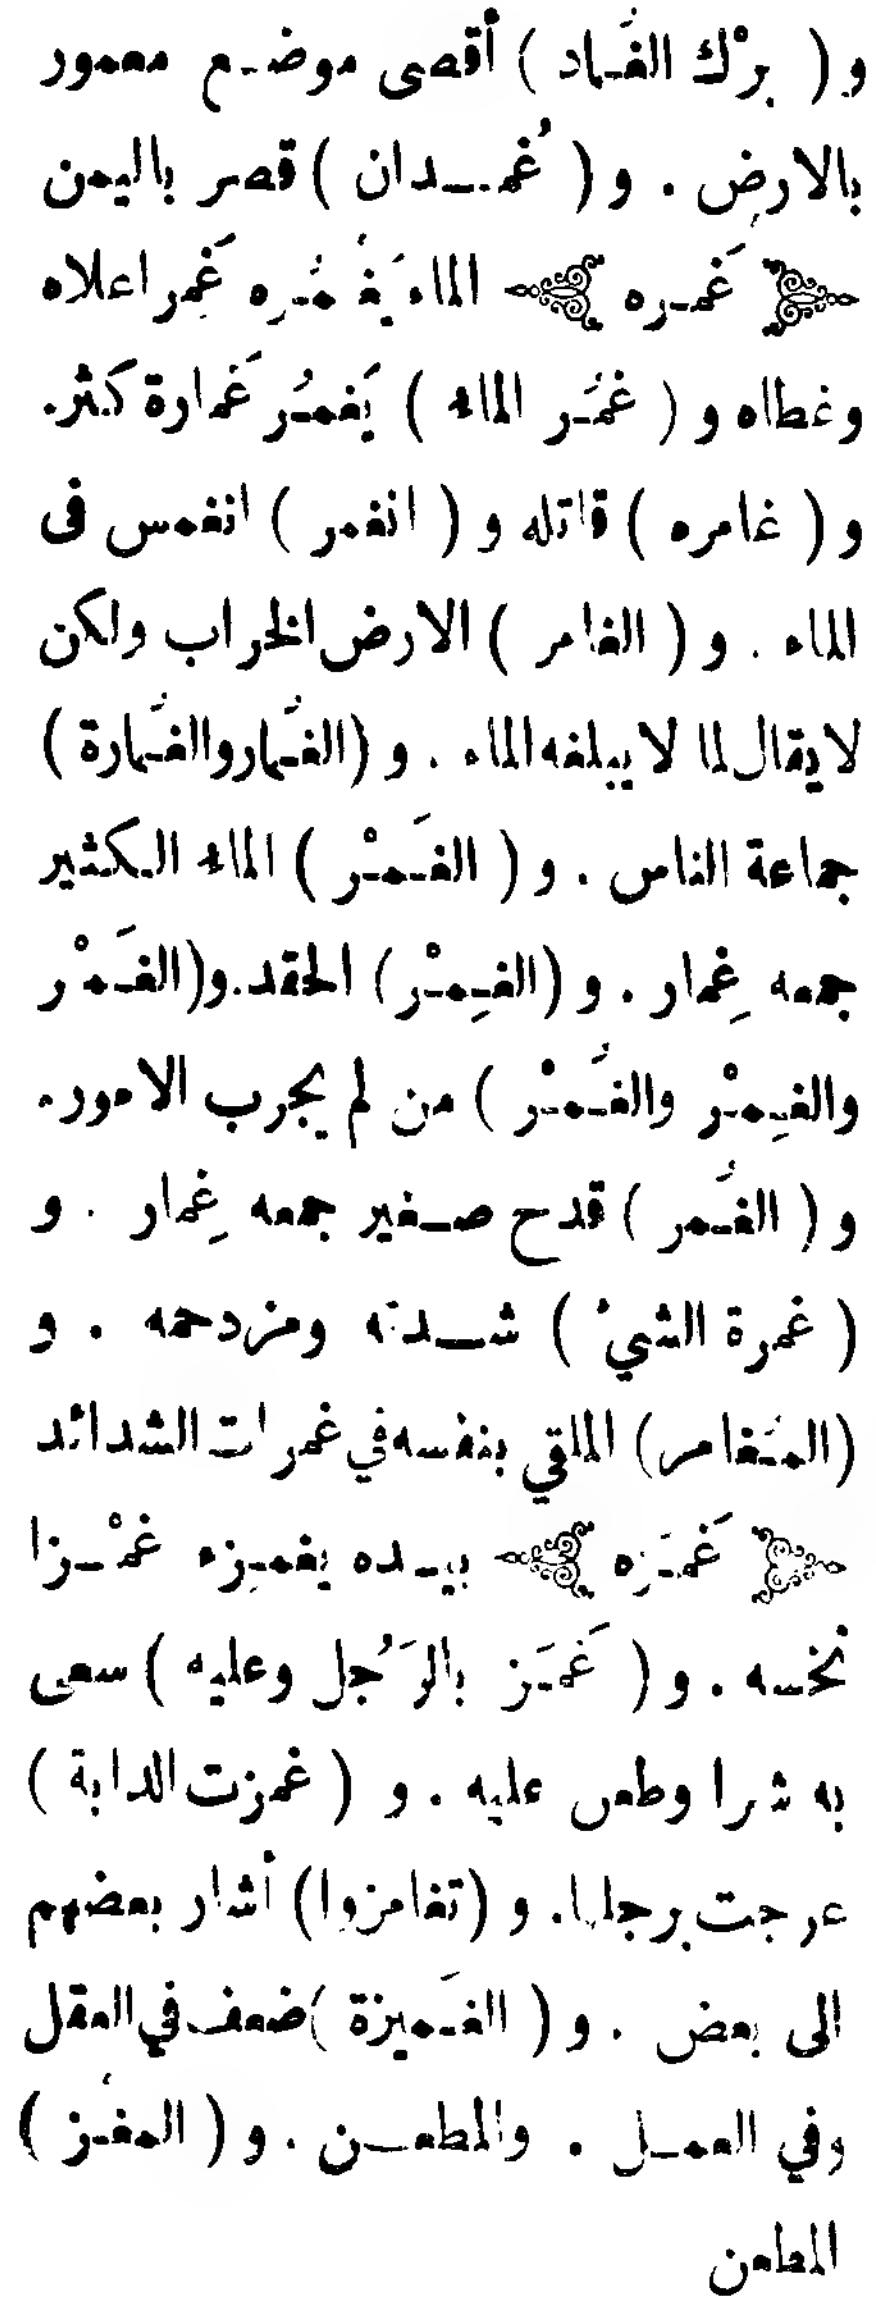 و ( برْك الغُماد ) أقصى موضع معمور
بالارض . و ( غُمدان ) قصر باليمن
﴿ غَمره ﴾ الماء يَغمُره غَمر اعلاه
وغطاه و ( غمُر الماء ) يَغمُر غَمارة كثر.
و ( غامره ) قاتله و ( انغمر ) انغمس فى
الماء . و ( الغامر ) الارض الخراب ولكن
لا يقال لما لا يبلغه الماء . و (الغُمار والغُمارة )
جماعة الناس . و ( الغَمْر ) الماء الكثير
جمعه غِمار . و (الغِمْر) الحقد. و(الغَمْر
والغِمْر والغُمْر ) من لم يجرب الامور.
و ( الغُمر ) قدح صغير جمعه غِمار . و
( غمرة الشيء ) شدته ومزدحمه . و
(المُغامر) الملقي بنفسه في غمرات الشدائد
﴿ غَمَزه ﴾ بيده يغمِزه غمْزا
نخسه . و ( غَمَز بالرَجُل وعليه ) سعى
به شرا وطعن عليه . و ( غمزت الدابة )
عرجت برجلها. و (تغامزوا) أشار بعضهم
الى بعض . و ( الغَميزة )ضعف في العقل
وفي العمل . والمطعن . و ( المغمز )
المطعن